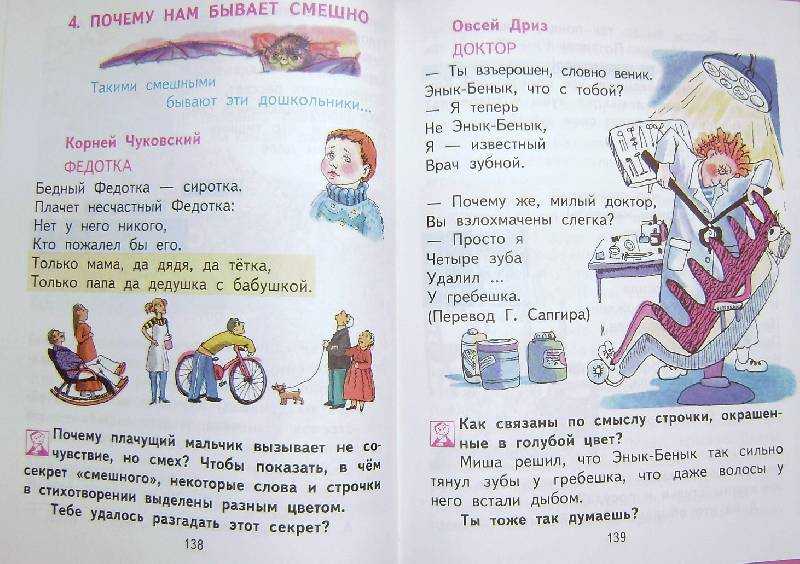 4. ПОЧЕМУ НАМ БЫВАЕТ СМЕШНО
Такими смешными
бывают эти дошкольники...
Корней Чуковский
ФЕДОТКА
Бедный Федотка — сиротка.
Плачет несчастный Федотка:
Нет у него никого,
Кто пожалел бы его.
Только мама, да дядя, да тётка,
Только папа да дедушка с бабушкой.
Почему плачущий мальчик вызывает не со-
чувствие, но смех? Чтобы показать, в чём
секрет «смешного», некоторые слова и строчки
в стихотворении выделены разным цветом.
Тебе удалось разгадать этот секрет?
138
Овсей Дриз
ДОКТОР
— Ты взъерошен, словно веник.
Энык-Бенык, что с тобой?
— Я теперь
Не Энык-Бенык,
Я — известный
Врач зубной.
— Почему же, милый доктор,
Вы взлохмачены слегка?
— Просто я
Четыре зуба
Удалил ...
У гребешка.
(Перевод Г. Сапгира)
Как связаны по смыслу строчки, окрашен-
ные в голубой цвет?
Миша решил, что Энык-Бенык так сильно
тянул зубы у гребешка, что даже волосы у
него встали дыбом.
Ты тоже так думаешь?
139